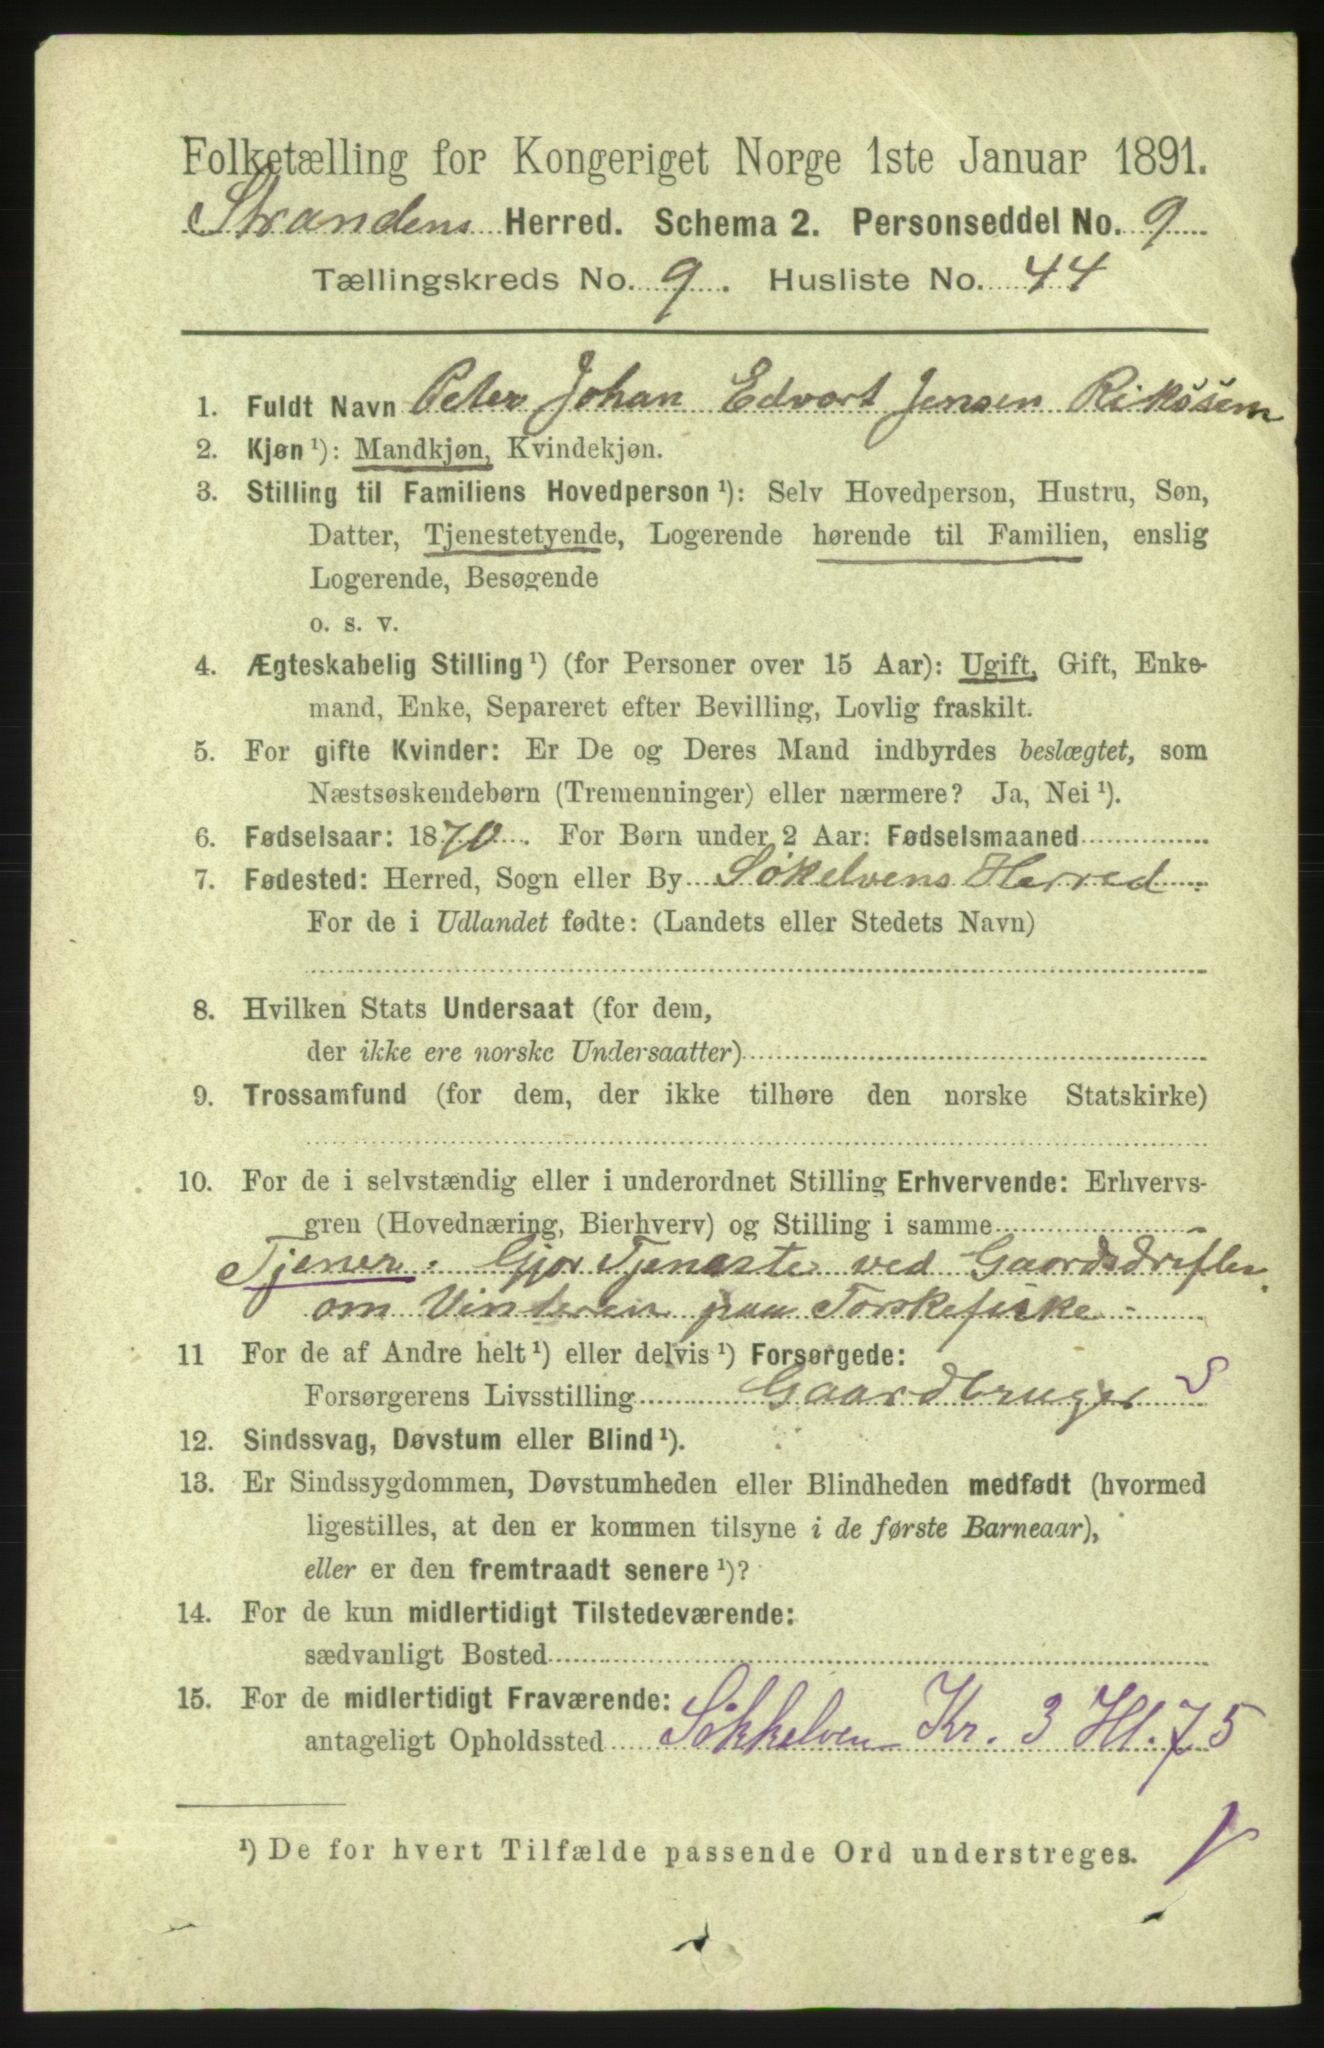 Folketælling for Kongeriget Norge 1ste Januar 1891.
Strandens Herred. Schema 2. Personseddel No. 9
Tællingskreds No. 9. Husliste No. 44
1. Fuldt Navn Peter Johan Edvart Jensen Rikssem
2. Kjøn ¹): Mandkjøn, Kvindekjøn.
3. Stilling til Familiens Hovedperson ¹): Selv Hovedperson, Hustru, Søn,
Datter, Tjenestetyende, Logerende hørende til Familien, enslig
Logerende, Besøgende
o. s. v.
4. Ægteskabelig Stilling ¹) (for Personer over 15 Aar): Ugift, Gift, Enke-
mand, Enke, Separeret efter Bevilling, Lovlig fraskilt.
5. For gifte Kvinder: Er De og Deres Mand indbyrdes beslægtet, som
Næstsøskendebørn (Tremenninger) eller nærmere? Ja, Nei ¹).
6. Fødselsaar: 1870. For Børn under 2 Aar: Fødselsmaaned
7. Fødested: Herred, Sogn eller By Søkelvens Herred
For de i Udlandet fødte: (Landets eller Stedets Navn)
8. Hvilken Stats Undersaat (for dem,
der ikke ere norske Undersaatter)
9. Trossamfund (for dem, der ikke tilhøre den norske Statskirke)
10. For de i selvstændig eller i underordnet Stilling Erhvervende: Erhvervs-
gren (Hovednæring, Bierhverv) og Stilling i samme
Tjener. Gjør Tjeneste ved Gaardsdriften
om Vinteren paa Torskefiske
11 For de af Andre helt ¹) eller delvis ¹) Forsørgede:
Forsørgerens Livsstilling Gaardbruger
12. Sindssvag, Døvstum eller Blind ¹).
13. Er Sindssygdommen, Døvstumheden eller Blindheden medfødt (hvormed
ligestilles, at den er kommen tilsyne i de første Barneaar),
eller er den fremtraadt senere ¹)?
14. For de kun midlertidigt Tilstedeværende:
sædvanligt Bosted
15. For de midlertidigt Fraværende:
antageligt Opholdssted Sökkelven Kr. 3 Hl. 75
¹) De for hvert Tilfælde passende Ord understreges.